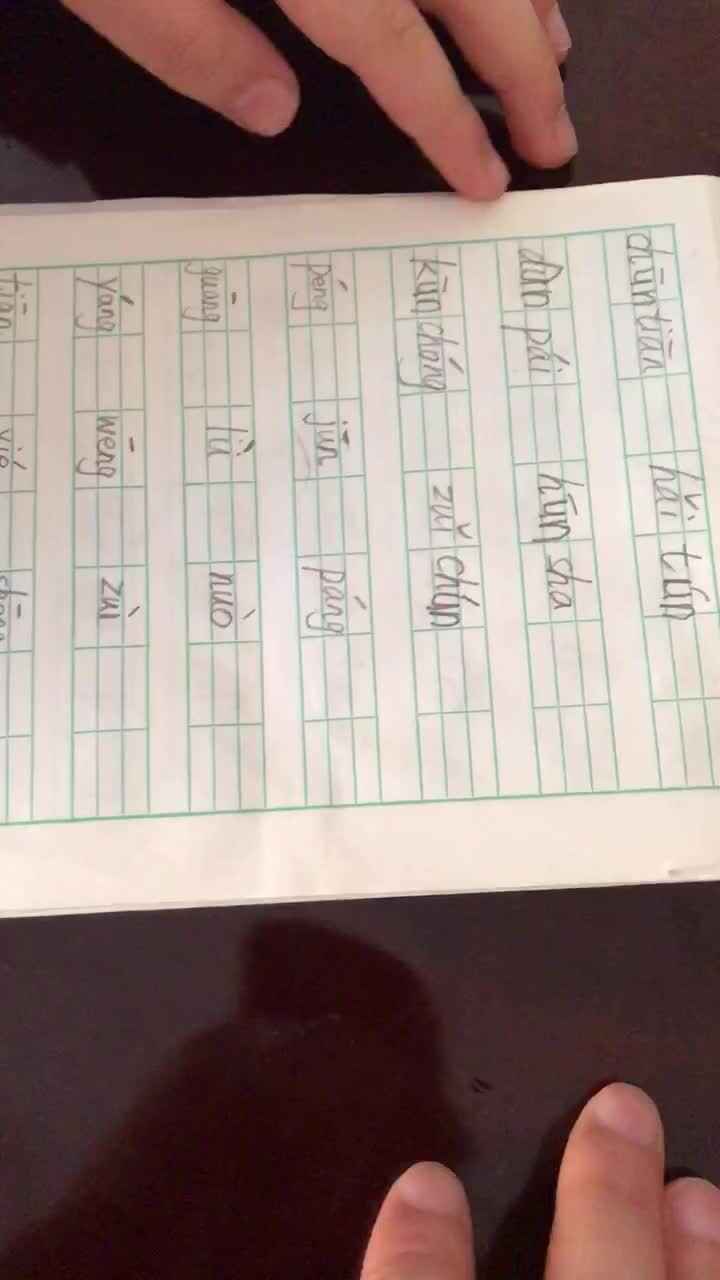 chūn tiān hǎi tún
dùn pái hūn sha
kūn chóng zuǐ chún
péng jūn páng
guāng lǜ nuò
yáng wēng zuì
tiān yié